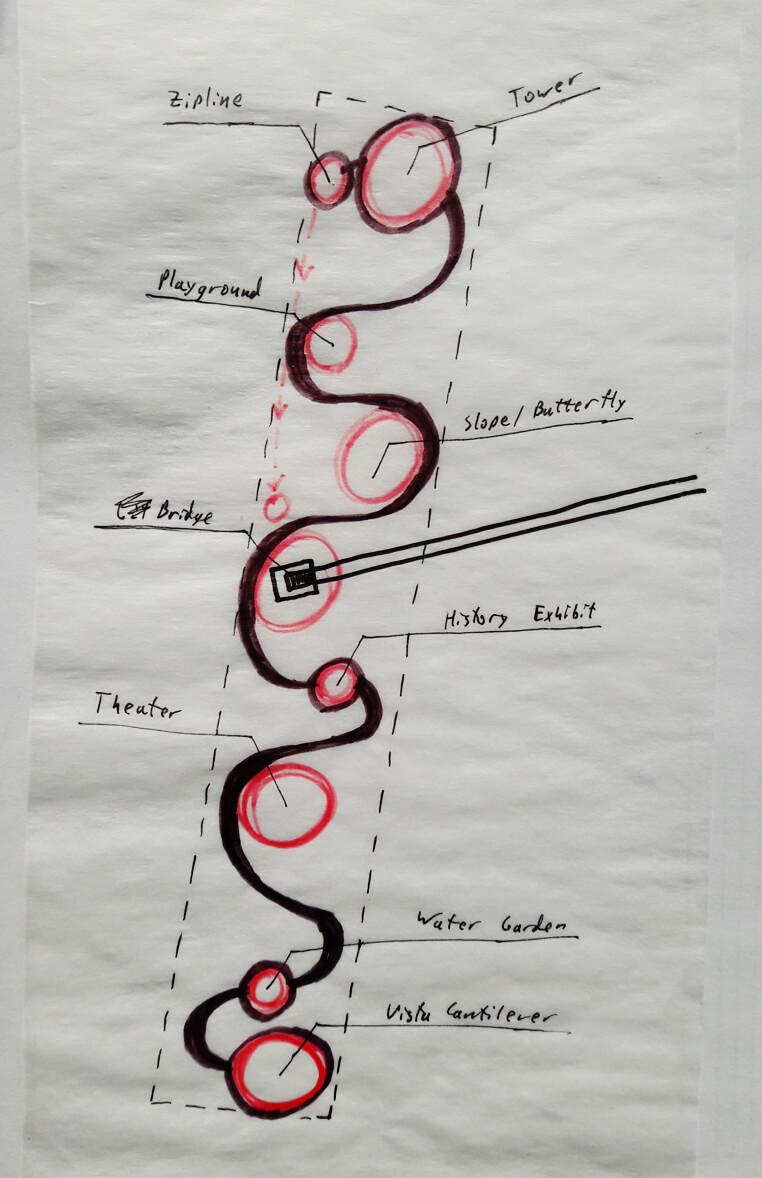 Zipline
Tower
Playground
Slope/Butterfly
Bridge
History Exhibit
Theater
Water Garden
Vista Cantilever